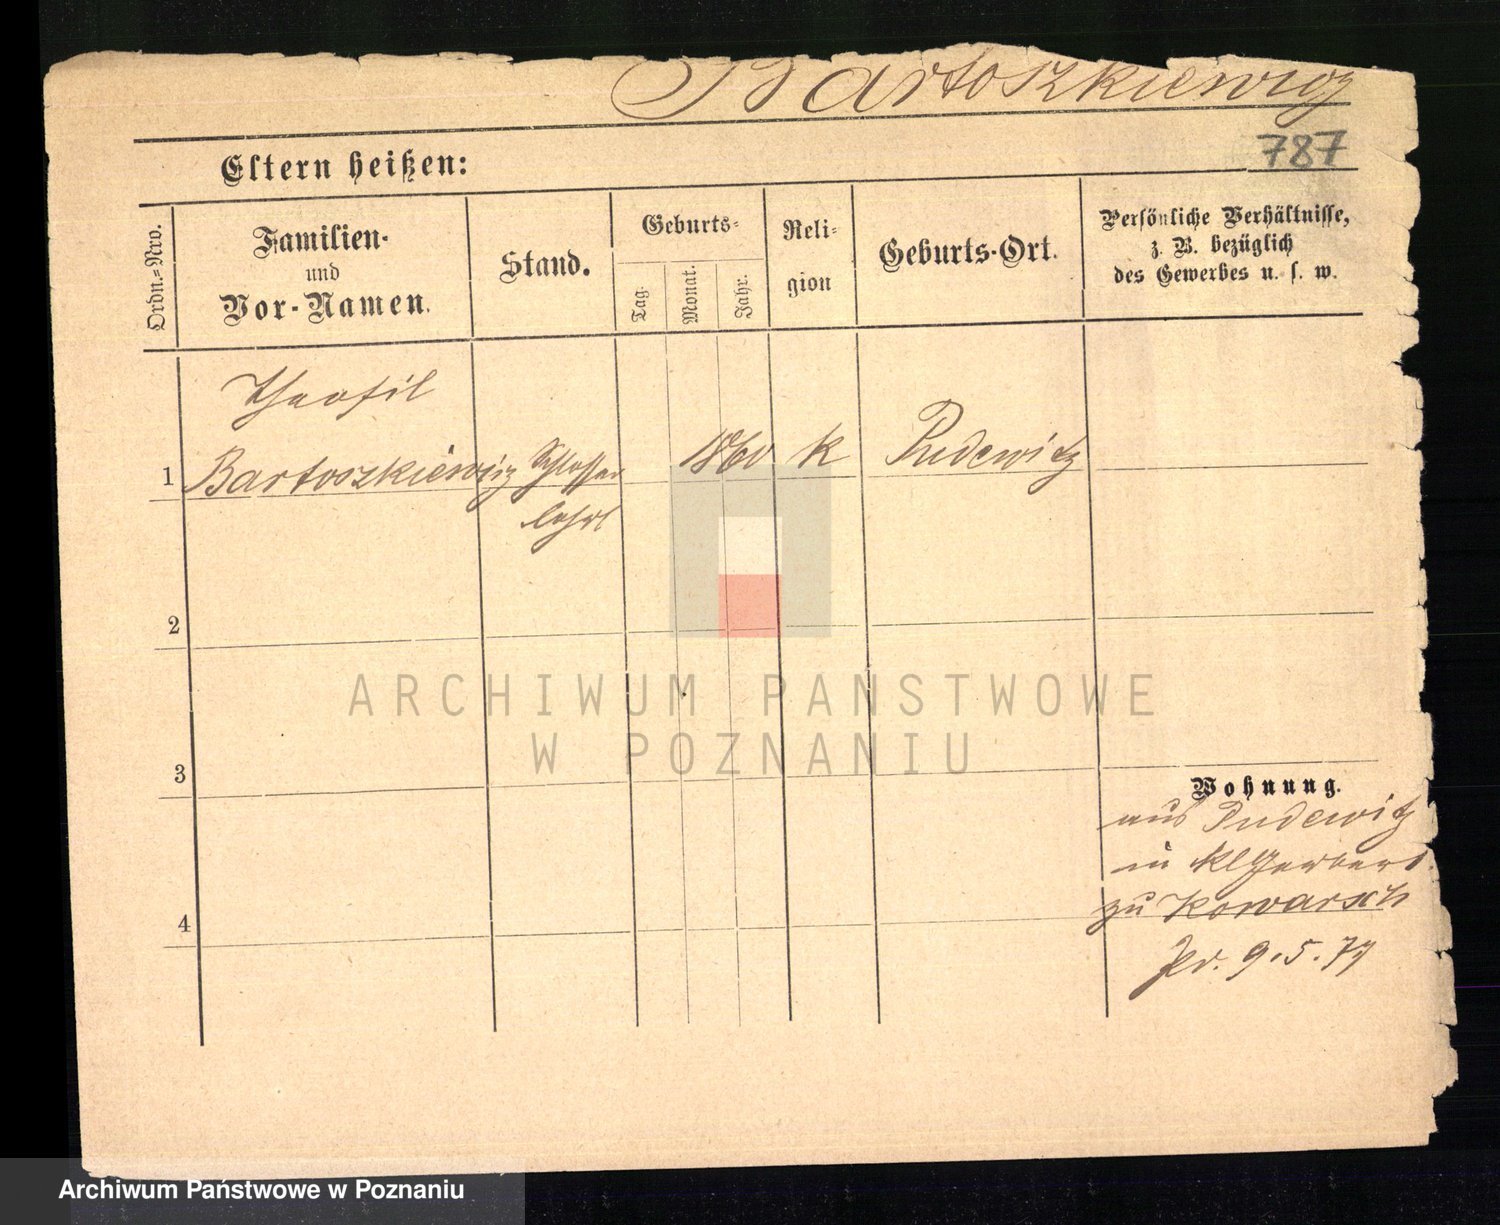 Bartoszkiewicz
787
Eltern heißen:
Ordn.=Nro.
Familien-
und
Vor-Namen.
Stand.
Geburts=
Tag.
Monat.
Jahr.
Reli=
gion
Geburts-Ort.
Persönliche Verhältnisse,
z. B. bezüglich
des Gewerbes u. s. w.
Theofil
1 Bartoszkiewicz Schlosser 1860 K Pudewitz
lehrl
2
3
4
Wohnung.
aus Pudewitz
in Kl Gerbers
zu Kowarsch
9.5.77
ARCHIWUM PAŃSTWOWE
W POZNANIU
Archiwum Państwowe w Poznaniu